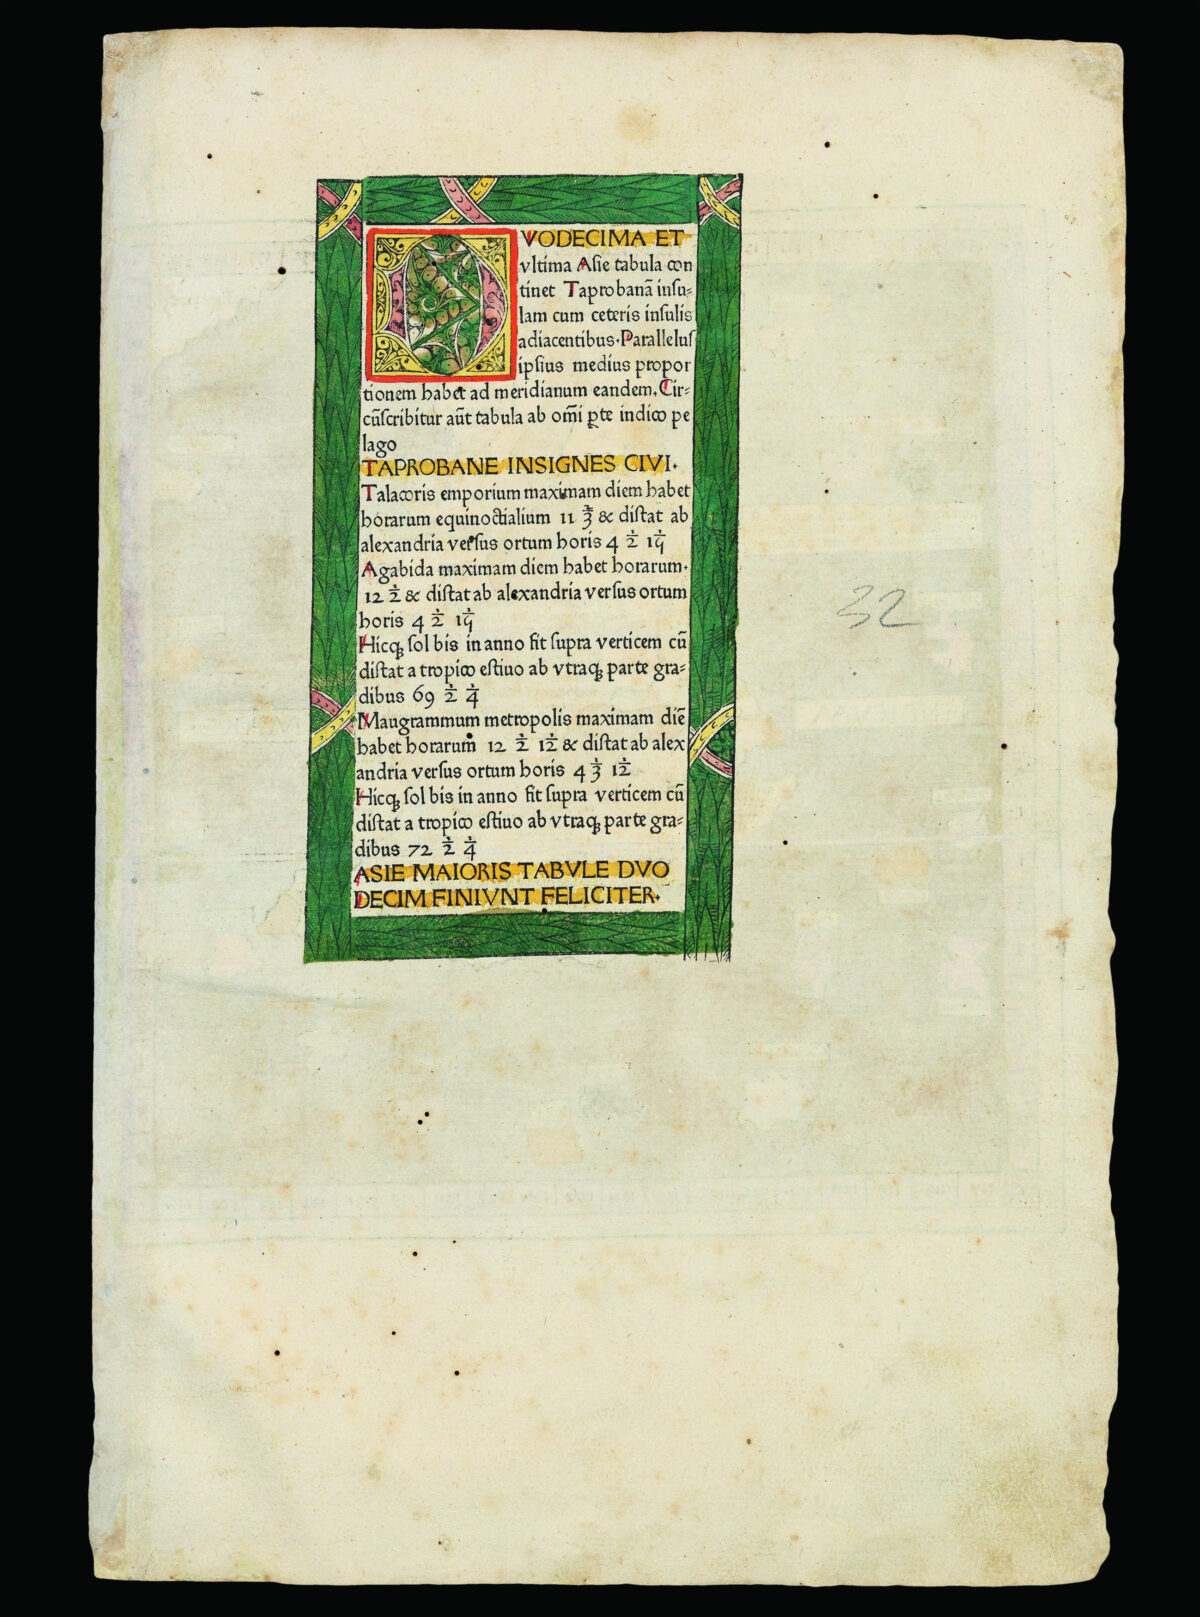 DVODECIMA ET
vltima Asie tabula con
tinet Taprobanā insu⸗
lam cum ceteris insulis
adiacentibus. Parallelus
ipsius medius propor
tionem habet ad meridianum eandem. Cir⸗
cūscribitur aūt tabula ab om̄i ꝑte indico pe
lago
TAPROBANE INSIGNES CIVI.
Talacoris emporium maximam diem habet
horarum equinoctialium 11 & distat ab
alexandria versus ortum horis 4 ½
Agabida maximam diem habet horarum.
12 ½ & distat ab alexandria versus ortum
horis 4 ½
Hicꝗ sol bis in anno fit supra verticem cū
distat a tropico estiuo ab vtraꝗ parte gra⸗
dibus 69 ½ ¼
Maugrammum metropolis maximam diē
habet horarum 12 ½ 1/12 & distat ab alex
andria versus ortum horis 4 ⅓ 1/12
Hicꝗ sol bis in anno fit supra verticem cū
distat a tropico estiuo ab vtraꝗ parte gra⸗
dibus 72 ½ ¼
ASIE MAIORIS TABVLE DVO
DECIM FINIVNT FELICITER.
32